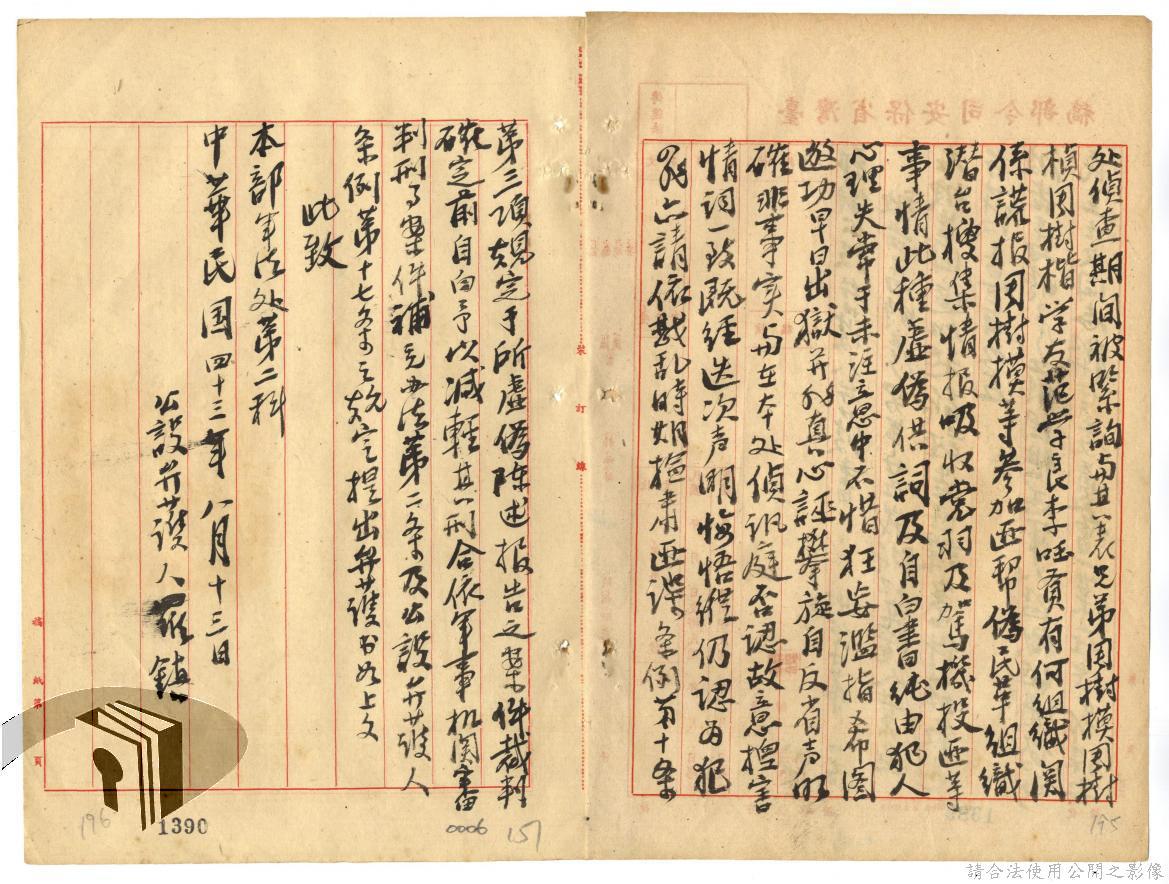 处偵查期间被緊詢与其表兄弟周樹模周樹
楨周樹楷学友范学良李旺貢有何組織関
係謊报周樹模等參加匪帮偽民革組織
潜台搜集情报吸收党羽及駕機投匪等
事情此種虛偽供詞及自白書純由犯人
心理失常于未注意中不惜狂妄濫指希图
邀功早日出獄并非真心誣攀旋自反省声明
確非事实与在本处偵讯庭否認故意擅害
情词一致既經迭次声明悔悟縱仍認为犯
罪亦請依戡乱時期檢肃匪諜条例第十条
第三項規定于所虛偽陈述报告之案件裁判
確定前自白予以減輕其刑合依軍事机関審
判刑事案件補充办法第二条及公設弁護人
条例第十七条之規定提出弁護书如上文
此致
本部軍法处第二科
公設弁護人 鎮
中華民国四十三年八月十三日
臺灣省保安司令部稿
裝訂線
稿紙第 頁
195
196
1390
0006
157
請合法使用公開之影像